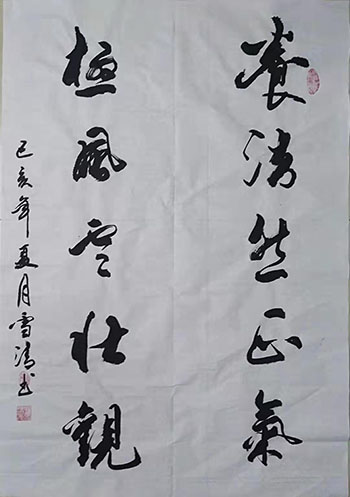 養浩然正氣
極風雲壯觀
己亥年夏月雪清书